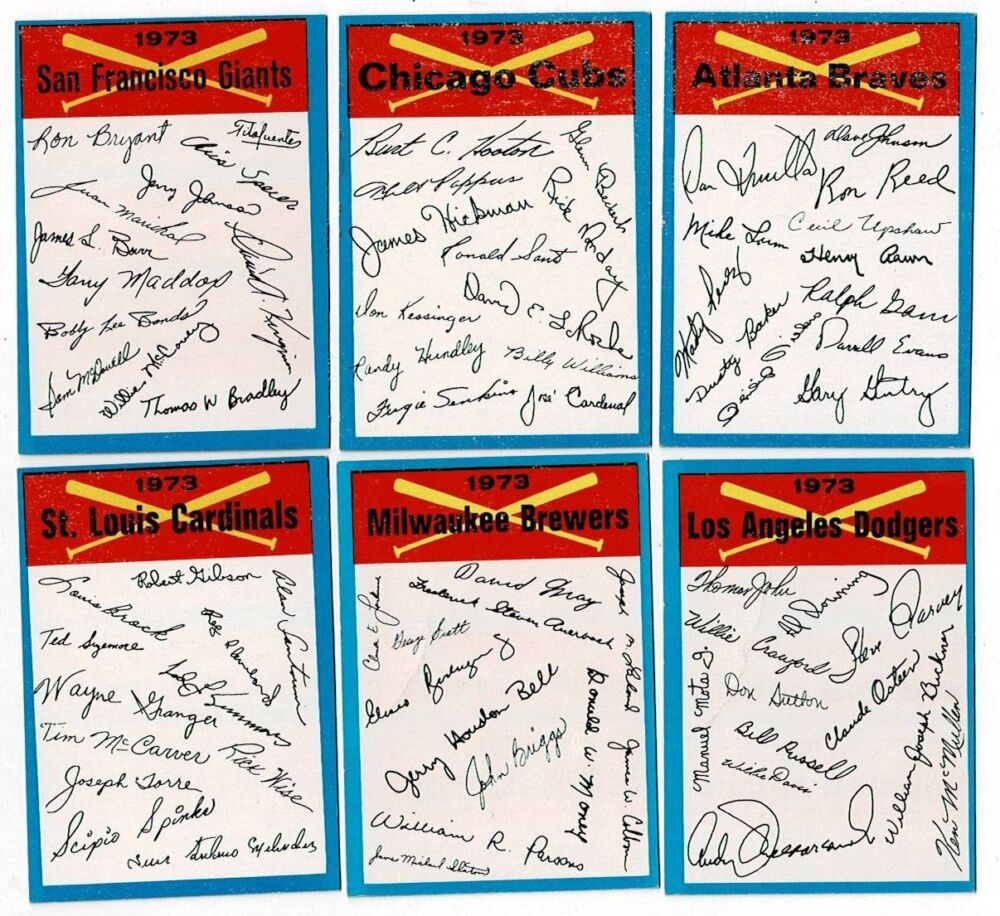 1973
San Francisco Giants
Ron Bryant
Tito Fuentes
Chris Speier
Jerry Johnson
Juan Marichal
James L. Barr
Gary Maddox
David A. Kingman
Bobby Lee Bonds
Sam McDowell
Willie McCovey
Thomas W Bradley
1973
Chicago Cubs
Burt C. Hooton
Glenn Beckert
Milt Pappas
Rick Monday
James Hickman
Ronald Santo
Don Kessinger
David E.
Randy Hundley
Billy Williams
Fergie Jenkins
José Cardenal
1973
Atlanta Braves
Dave Johnson
Ron Reed
Mike Lum
Cecil Upshaw
Henry Aaron
Marty Perez
Ralph Garr
Dusty Baker
Darrell Evans
Gary Gentry
1973
St. Louis Cardinals
Robert Gibson
Louis Brock
Alan Santorini
Ted Sizemore
Reg Cleveland
Wayne Granger
Ted Simmons
Tim McCarver
Rick Wise
Joseph Torre
Scipio Spinks
Luis Antonio Melendez
1973
Milwaukee Brewers
David May
Frederick Steven Auerbach
George Scott
Jerry Houston Bell
John Briggs
Donald W. Money
James W. Colborn
William R. Parsons
1973
Los Angeles Dodgers
Thomas John
Al Downing
Willie Crawford
Steve Garvey
Manuel Mota
Don Sutton
Claude Osteen
Bill Russell
Willie Davis
William Joseph Buckner
Ken McMullen
Andy Messersmith